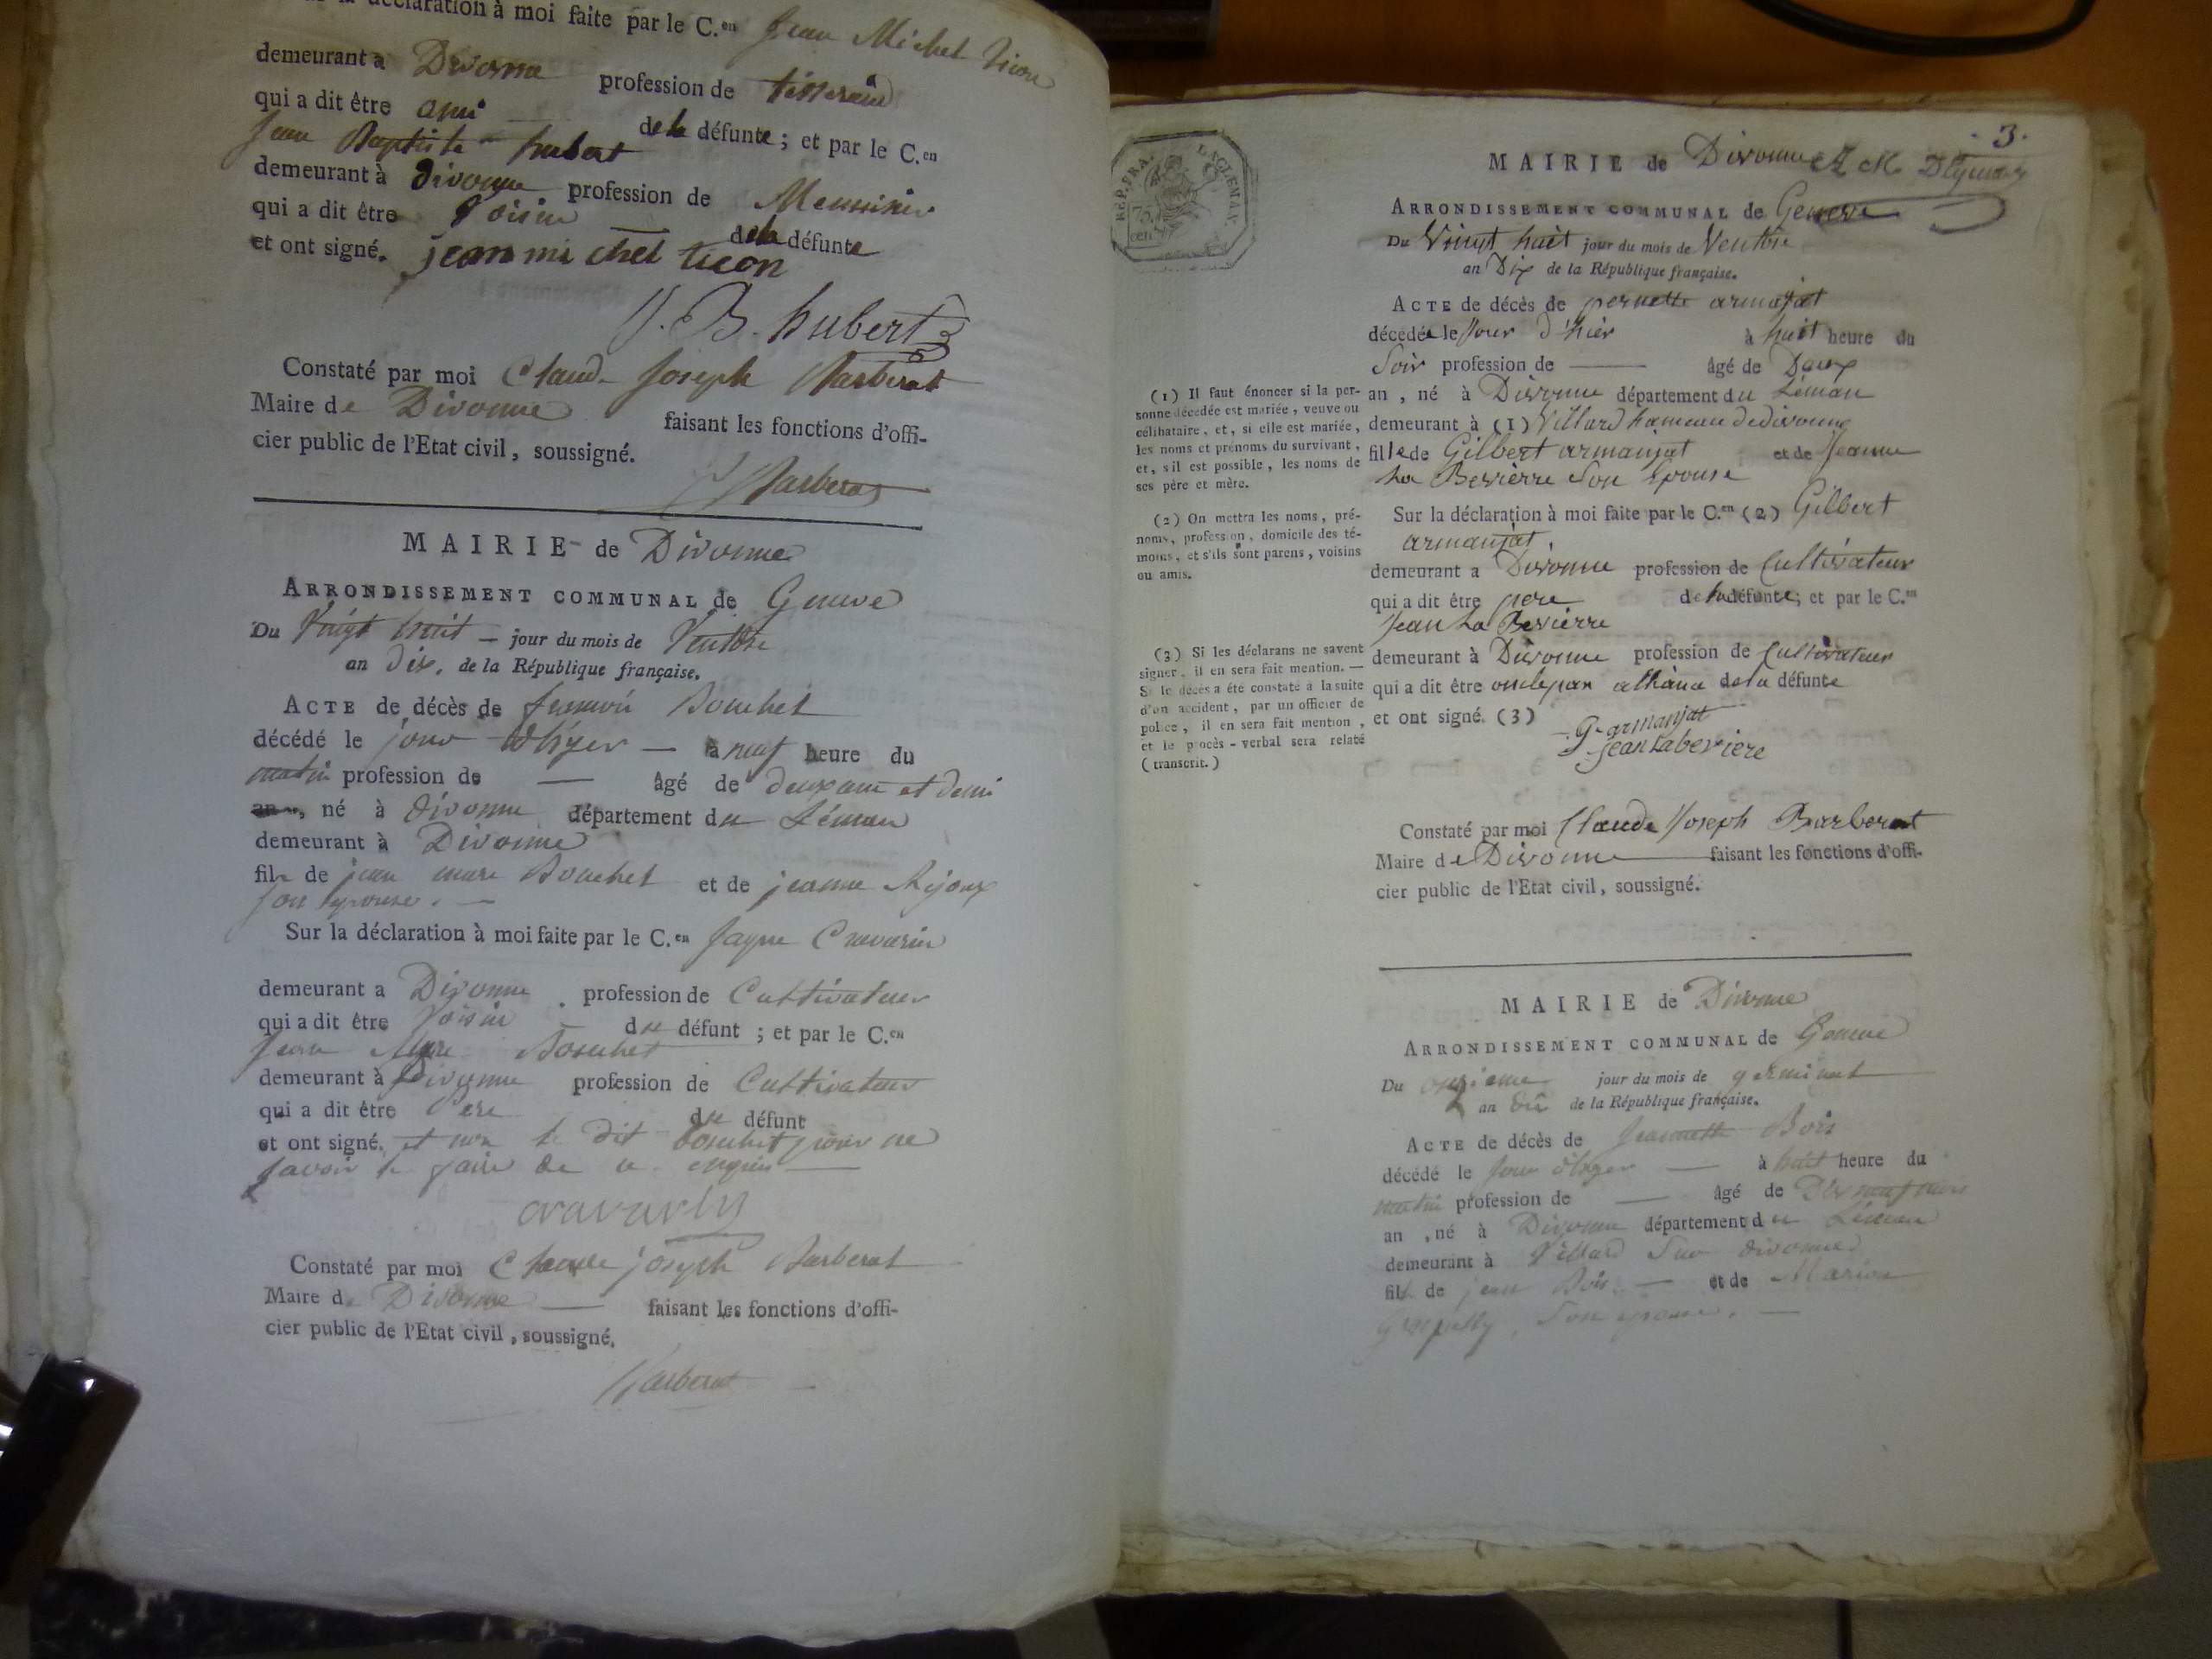 la déclaration à moi faite par le C.en Jean Michel Ticon
demeurant a Divonne profession de tisserand
qui a dit être ami de la défunte ; et par le C.en
Jean Baptiste hubert
demeurant à divonne profession de
qui a dit être Voisin de la défunte
et ont signé. jean mi chel ticon
J. B. hubert
Constaté par moi Claude Joseph Barberat
Maire de Divonne faisant les fonctions d'offi-
cier public de l'Etat civil, soussigné.
Barberat
MAIRIE de Divonne
ARRONDISSEMENT COMMUNAL de Geneve
Du Vingt huit jour du mois de Ventose
an dix, de la République française.
ACTE de décès de Bouchet
décédé le jour d'hyer à neuf heure du
matin profession de — âgé de deux ans et demi
an, né à divonne département du Léman
demeurant à Divonne
fils de jean marc Bouchet et de jeanne
son epouse.
Sur la déclaration à moi faite par le C.en Cravarin
demeurant a Divonne profession de Cultivateur
qui a dit être Voisin du défunt ; et par le C.en
Jean Marc Bouchet
demeurant à Divonne profession de Cultivateur
qui a dit être Pere du défunt
et ont signé. et non le dit bouchet pour ne
savoir le faire de ce enquis
Constaté par moi Claude joseph Barberat
Maire de Divonne faisant les fonctions d'offi-
cier public de l'Etat civil, soussigné.
Barberat
3.
REP. FRA.
75
cen
MAIRIE de Divonne
ARRONDISSEMENT COMMUNAL de Geneve
Du Vingt huit jour du mois de Ventose
an Dix de la République française.
ACTE de décès de pernette armanjat
décédée le Jour d'hier à huit heure du
Soir profession de — âgé de Deux
an, né à Divonne département du Léman
demeurant à (1) Villard hameau de divonne
fille de Gilbert armanjat et de Jeanne
La Bevierre Son Epouse
Sur la déclaration à moi faite par le C.en (2) Gilbert
armanjat,
demeurant a Divonne profession de Cultivateur
qui a dit être pere de la défunte; et par le C.en
Jean La Bevierre
demeurant à Divonne profession de Cultivateur
qui a dit être oncle par de la défunte
et ont signé. (3) G. armanjat
jean labeviere
Constaté par moi Claude Joseph Barberat
Maire de Divonne faisant les fonctions d'offi-
cier public de l'Etat civil, soussigné.
(1) Il faut énoncer si la per-
sonne décédée est mariée, veuve ou
célibataire, et, si elle est mariée,
les noms et prénoms du survivant,
et, s'il est possible, les noms de
ses père et mère.
(2) On mettra les noms, pré-
noms, profession, domicile des té-
moins, et s'ils sont parens, voisins
ou amis.
(3) Si les déclarans ne savent
signer, il en sera fait mention. —
Si le décès a été constaté à la suite
d'un accident, par un officier de
police, il en sera fait mention,
et le procès-verbal sera relaté
(transcrit.)
MAIRIE de Divonne
ARRONDISSEMENT COMMUNAL de Geneve
Du onzieme jour du mois de germinal
an dix de la République française.
ACTE de décès de Jeannette Bois
décédé le Jour d'hyer à huit heure du
matin profession de — âgé de Dix neuf mois
an, né à Divonne département du Léman
demeurant à Villard Sur divonne
fille de jean Bois et de Marion
Son epouse.